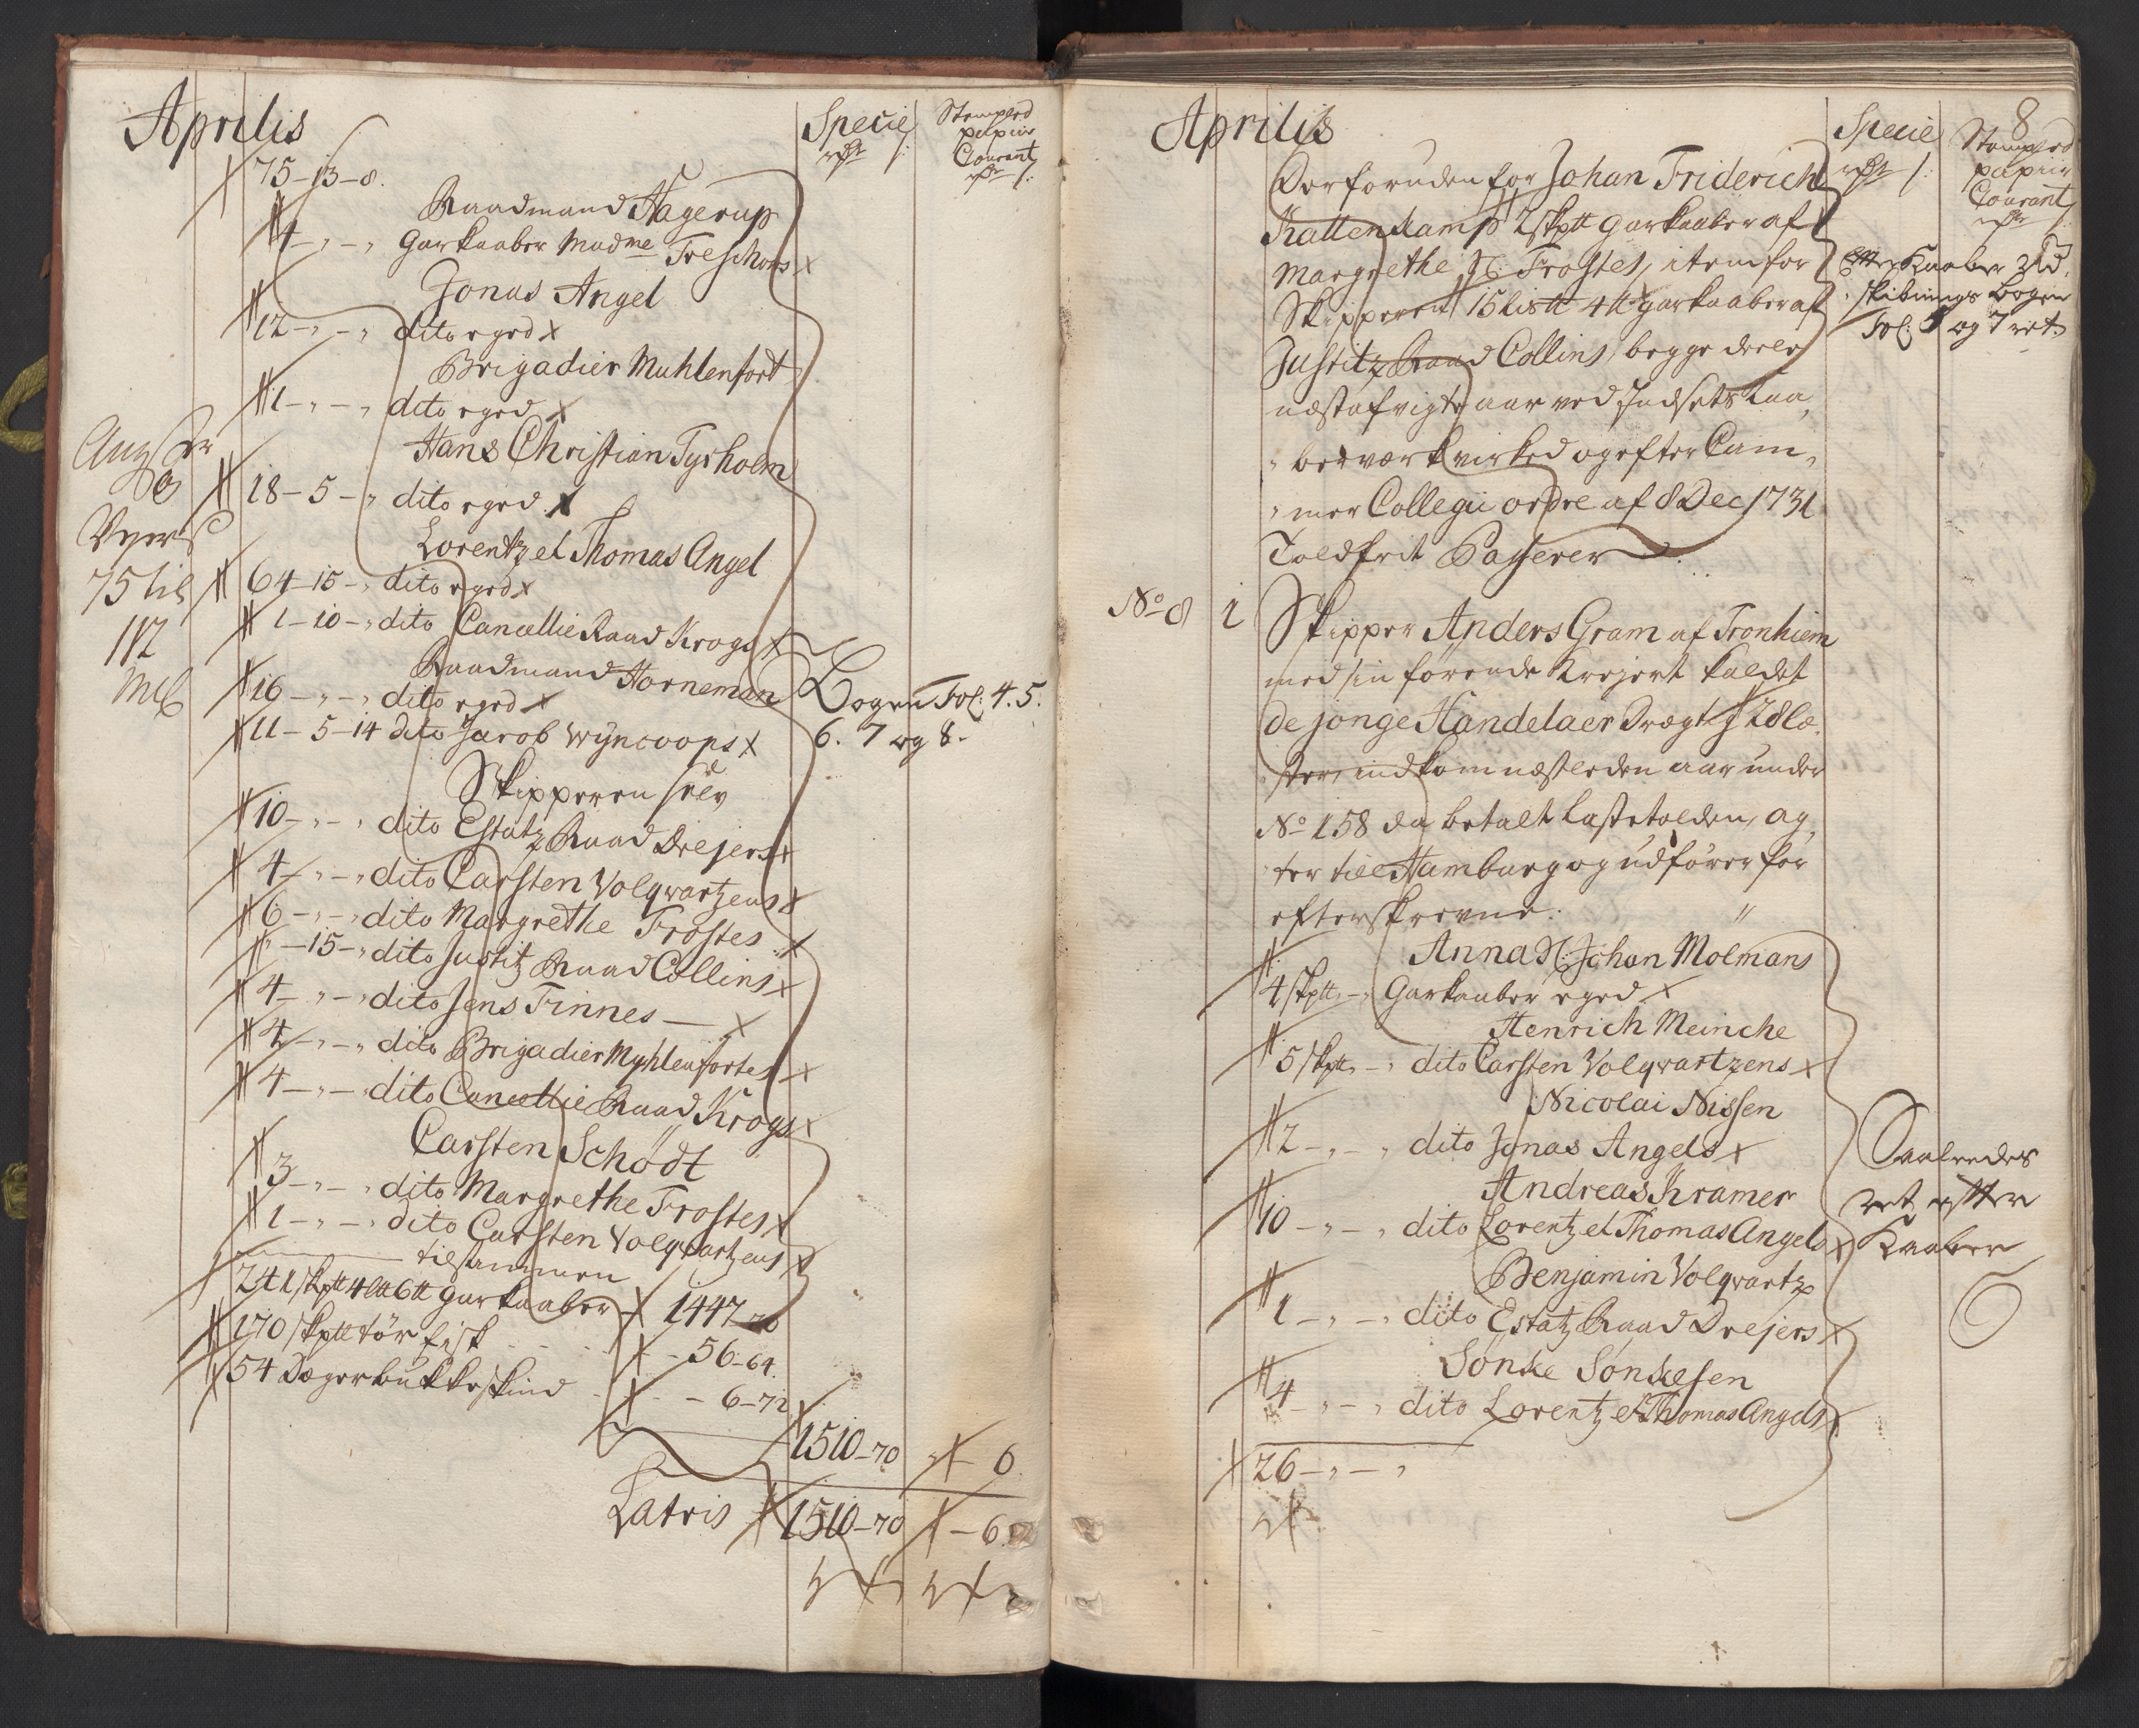 Aprilis
Specie
Stempled
papiir
Courant
75-13-8.
Raadmand Hagerup
4-"-" Garkaaber Madme Treschous
Jonas Angel
12-"-" dito eged
Brigadier Muhlenfort
1-"-" dito eged
Hans Christian Tyrholm
18-5-" dito eged
Lorentz et Thomas Angel
64-15-" dito eged
1-10-" dito Cancellie Raad Krogs
Raadmand Horneman
16-"-" dito eged
11-5-14 dito Jacob Wÿncoops
Skipperen selv
10-"-" dito Estatz Raad Drejers
4-"-" dito Carsten Volqvartzens
6-"-" dito Margrethe Frostes
"-15-" dito Justitz Raad Collins
4-"-" dito Jens Finnes
4-"-" dito Brigadier Myhlenfortes
4-"-" dito Cancellie Raad Krogs
Carsten Schödt
3-"-" dito Margrethe Frostes
1-"-" dito Carsten Volqvartzens
tilsammen
241 skp 4 6 garkaaber 1447-
170 skp tör fisk 56-64
54 Deger bukkeskind 6-72
1510-70 6
Latris 1510-70 6
75 til
112
Bogen Fol: 4. 5.
6. 7 og 8.
Aprilis
Specie
8
Stempled
papiir
Courant
Derforuden for Johan Friderich
Kattenkamp 2 skp garkaaber af
Margrethe Sl: Frostes, item for
Skipperen 15 lis 4 garkaaber af
Justitz Raad Collins, begge deele
næstafvigte aar ved Indsets Kaa,
"berværk virked og efter Cam,
"mer Collegii ordre af 8 Dec 1731
Toldfrit Passerer
efter Kaaber Ud,
skibnings bogen
Fol: 5 og 7 ret.
No 8 1 Skipper Anders Gram af Tronhiem
med sin förende Krejert kaldet
de jonge Handelaer drægt 28 læ,
ster, indkom næstleden aar under
No 158 da betalt lastetolden, ag,
ter till Hamburg og udförer for
efterskrevne: "
Anna Sl: Johan Molmans
4 skp-" Garkaaber eged
Henrich Meinche
5 skp-" dito Carsten Volqvartzens
Nicolai Nissen
2-"-" dito Jonas Angels
Andreas Kramer
10-"-" dito Lorentz et Thomas Angels
Benjamin Volqvartz
1-"-" dito Estatz Raad Drejers
Sönke Sönkesen
4-"-" dito Lorentz et Thomas Angels
26-"-"
Saaledes
ret efter
Kaaber